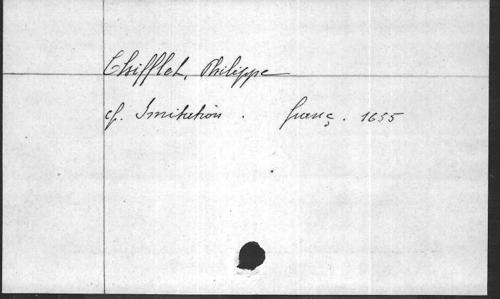 Chifflet, Philippe
cf. Imitation . franç . 1655